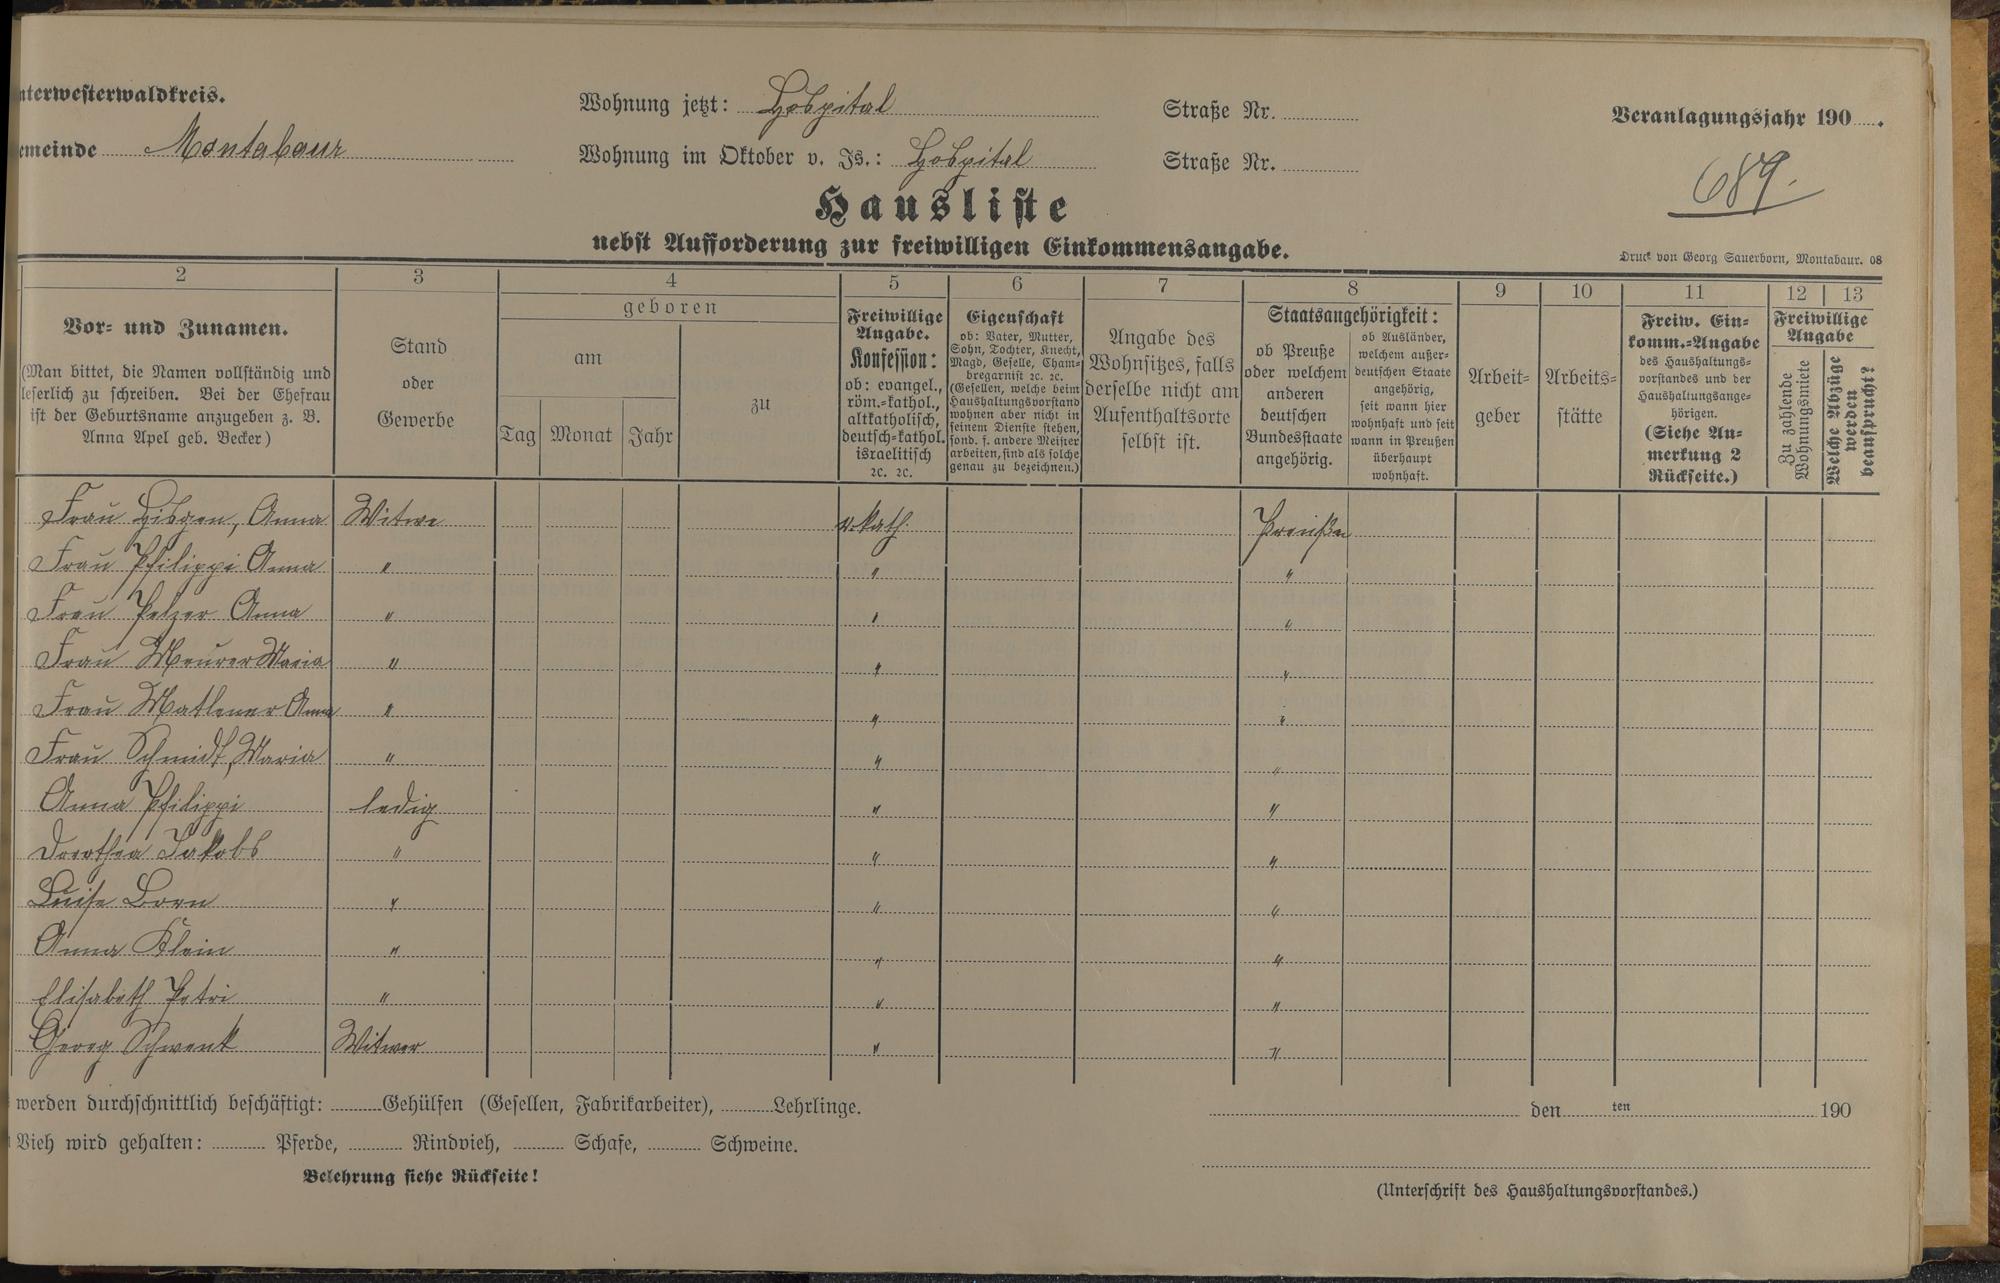 nterwesterwaldkreis.
emeinde Montabaur
Wohnung jetzt: Hospital Straße Nr.
Wohnung im Oktober v. Js.: Hospital Straße Nr.
Veranlagungsjahr 190 .
689.
Hausliste
nebst Aufforderung zur freiwilligen Einkommensangabe.
Druck von Georg Sauerborn, Montabaur. 08
2 3 4 5 6 7 8 9 10 11 12 13
Vor- und Zunamen.
(Man bittet, die Namen vollständig und
leserlich zu schreiben. Bei der Ehefrau
ist der Geburtsname anzugeben z. B.
Anna Apel geb. Becker)
Stand
oder
Gewerbe
geboren
am
Tag Monat Jahr
zu
Freiwillige
Angabe.
Konfession:
ob: evangel.,
röm.-kathol.,
altkatholisch,
deutsch-kathol.
israelitisch
2c. 2c.
Eigenschaft
ob: Vater, Mutter,
Sohn, Tochter, Knecht,
Magd, Geselle, Cham-
bregarnist 2c. 2c.
(Gesellen, welche beim
Haushaltungsvorstand
wohnen aber nicht in
seinem Dienste stehen,
sond. f. andere Meister
arbeiten, sind als solche
genau zu bezeichnen.)
Angabe des
Wohnsitzes, falls
derselbe nicht am
Aufenthaltsorte
selbst ist.
Staatsangehörigkeit:
ob Preuße
oder welchem
anderen
deutschen
Bundesstaate
angehörig.
ob Ausländer,
welchem außer-
deutschen Staate
angehörig,
seit wann hier
wohnhaft und seit
wann in Preußen
überhaupt
wohnhaft.
Arbeit-
geber
Arbeits-
stätte
Freiw. Ein-
komm.-Angabe
des Haushaltungs-
vorstandes und der
Haushaltungsange-
hörigen.
(Siehe An-
merkung 2
Rückseite.)
Freiwillige
Angabe
Zu zahlende
Wohnungsmiete
Welche Abzüge
werden
beansprucht?
Frau Hisgen, Anna Witwe r. kath. Preußen
Frau Philippi Anna " " "
Frau Pelzer Anna " " "
Frau Meurer Maria " " "
Frau Matlener Anna " " "
Frau Schmidt, Maria " " "
Anna Philippi ledig " "
Dorothea Jakobs " " "
Luise Born " " "
Anna Klein " " "
Elisabeth Petri " " "
Georg Schwenk Witwer " "
werden durchschnittlich beschäftigt: Gehülfen (Gesellen, Fabrikarbeiter), Lehrlinge.
den ten 190
Vieh wird gehalten: Pferde, Rindvieh, Schafe, Schweine.
Belehrung siehe Rückseite!
(Unterschrift des Haushaltungsvorstandes.)